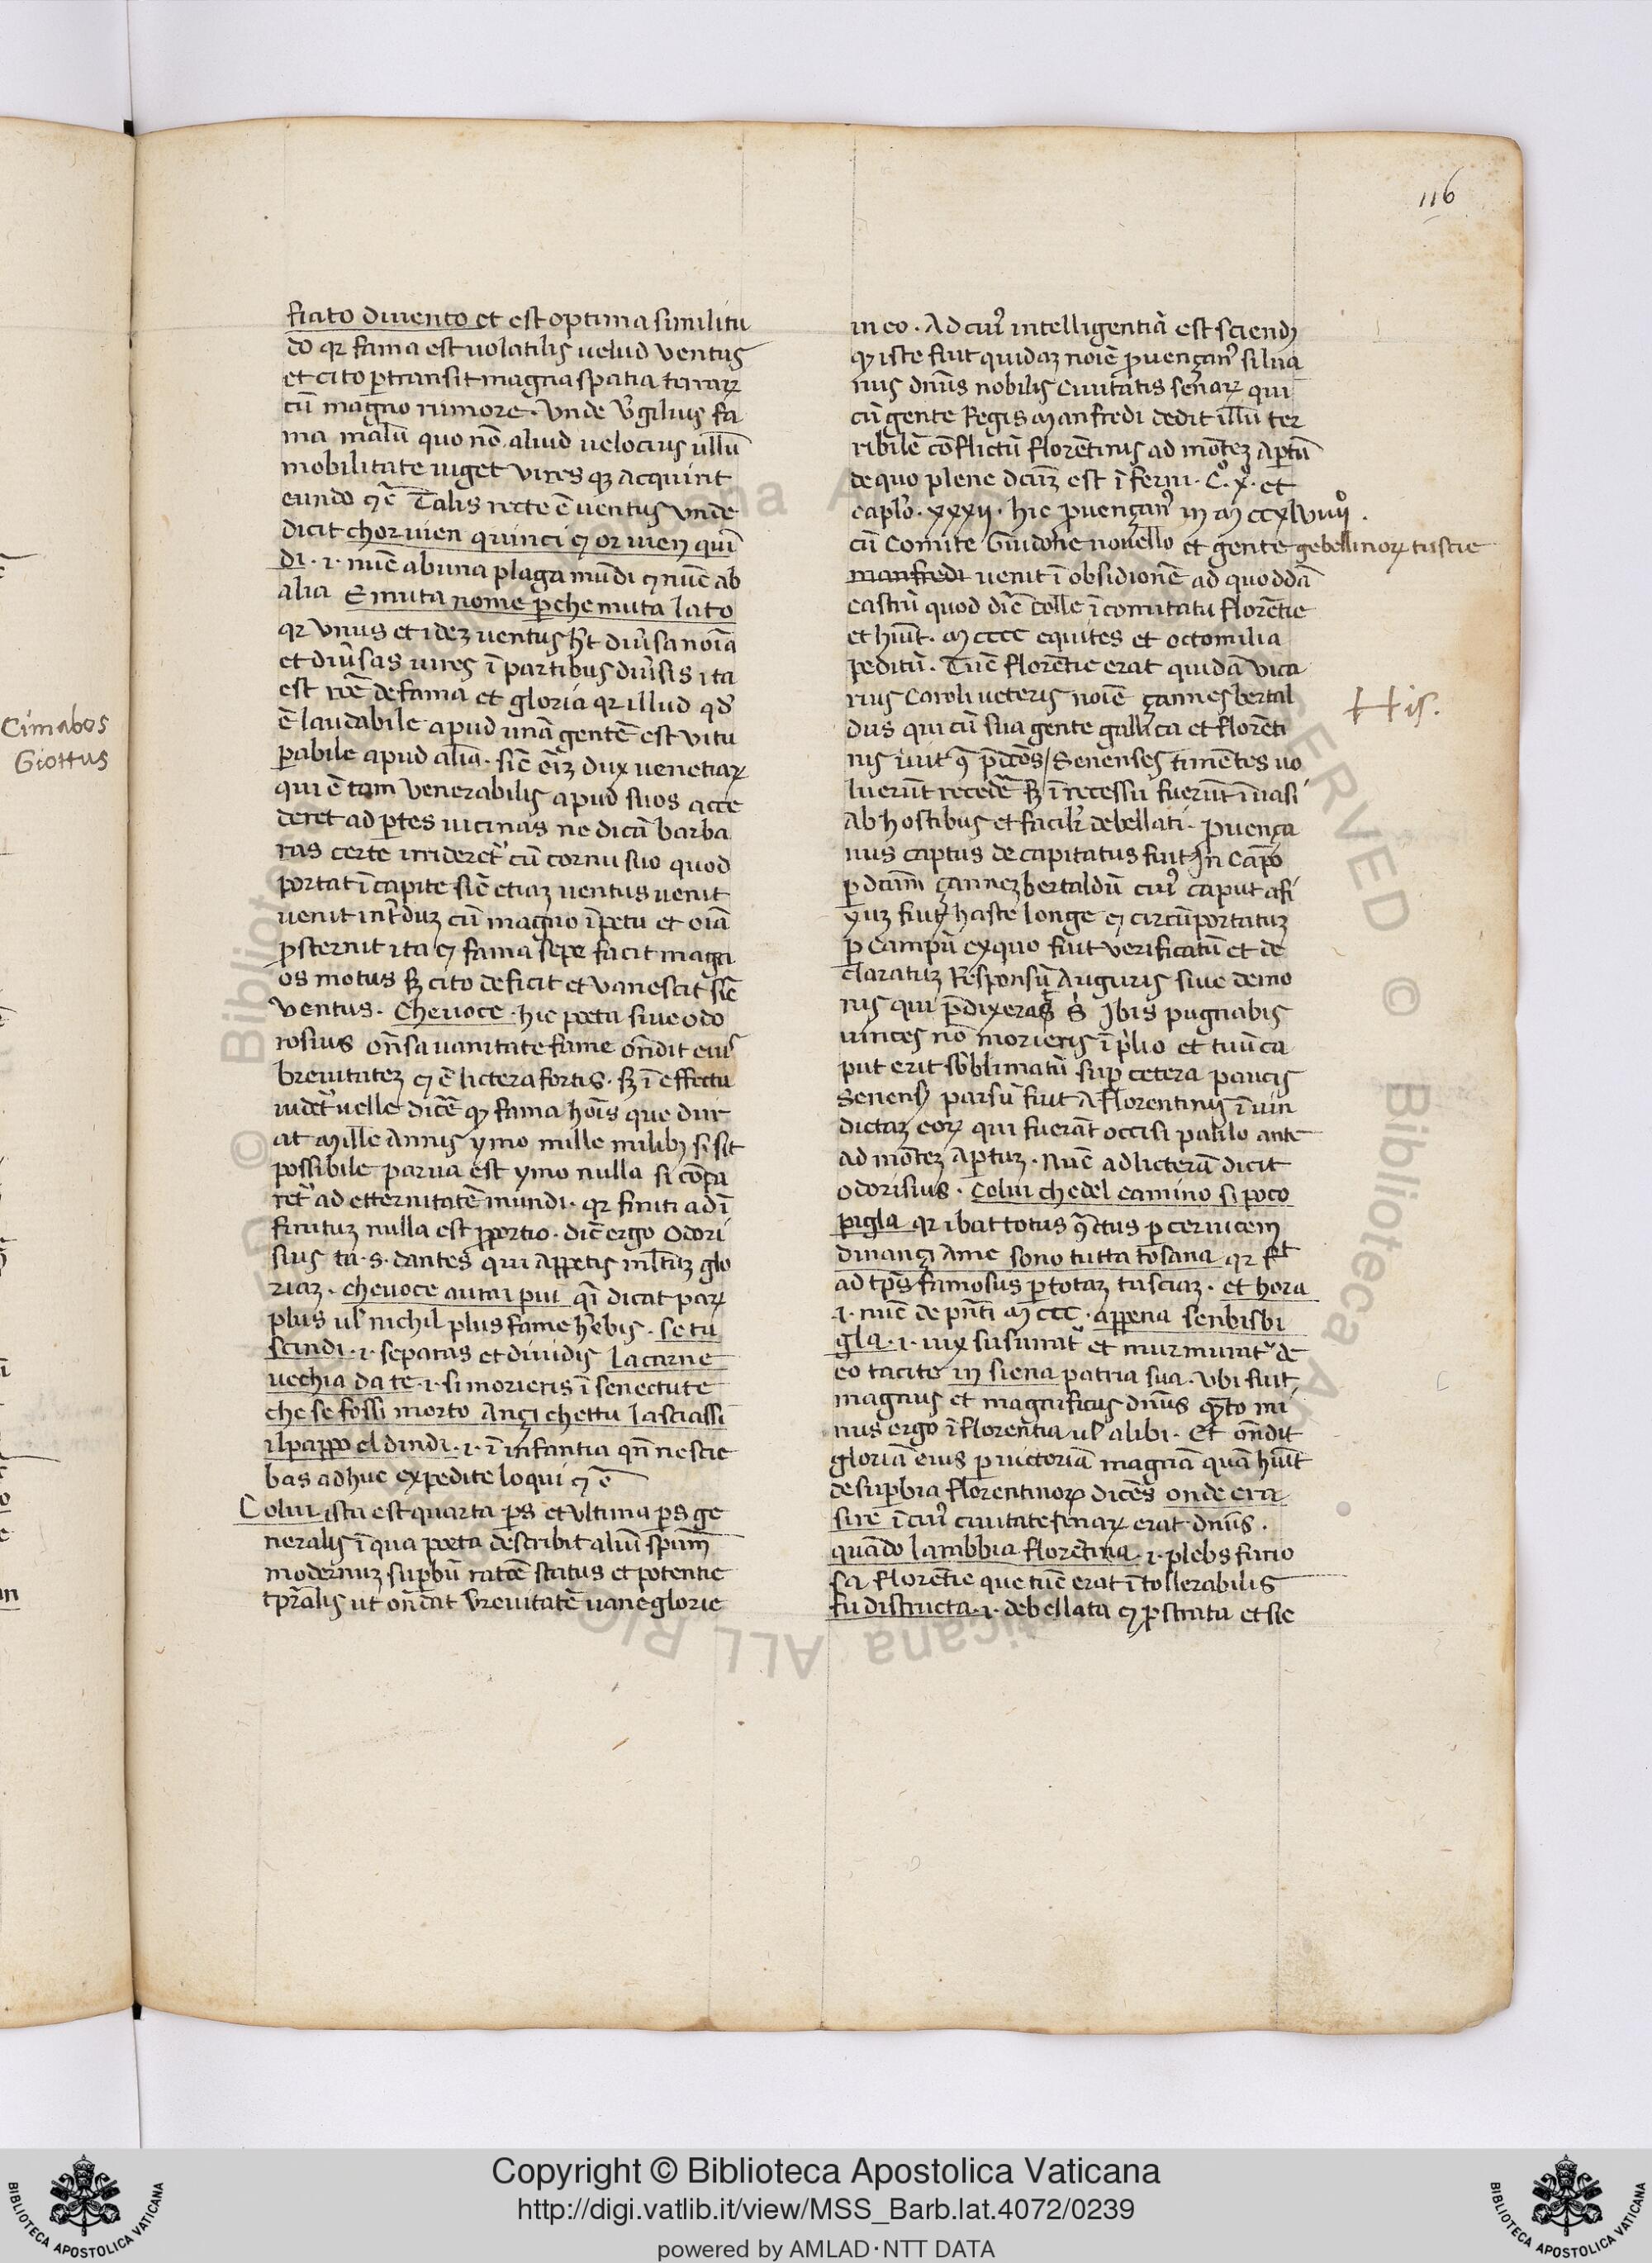 116
Cimabos
Giottus
fiato diuento et est optima similitu
do qr fama est uolatilis uelud ventus
et cito ꝑtransit magna spatia terraꝝ
cū magno rumore . Vnde v̓gilius fa
ma malū quo nō aliud uelocius ullū
mobilitate uiget vires qꝫ acquirit
eundo ⁊ ē Talis recte ē uentus vnde
dicit chor uien quinci ⁊ or uien quī
di . i . nūc ab una plaga mūdi ⁊ nūc ab
alia E muta nome ꝑche muta lato
qr vnus et ideꝫ uentus hꝫt diu̓sa noīa
et diu̓sas uires ī partibus diu̓sis ita
est rōe de fama et gloria qr illud qd̓
ē laudabile apud unā gentē est vitu
ꝑabile apud aliā . sic̄ eīꝫ dux uenetiaꝝ
qui ē tam venerabilis apud suos acce
deret ad ꝑtes uicinas ne dicā barba
ras certe irrideret̓ cū cornu suo quod
portat ī capite sic̄ etiaꝫ uentus uenit
uenit int̓duꝫ cū magno īpetu et oīa
ꝓsternit ita ⁊ fama sepe facit magn
os motus sꝫ cito deficit et vanescit sic̄
ventus . Che uoce . hic poeta siue odo
rosius ōn̄sa uanitate fame ōn̄dit eiu᷒
breuitateꝫ ⁊ ē lictera fortis . sꝫ ī effectu
uidet̓ uelle dicē̓ ꝙ fama hoīs que dur
at Mille Annis ymo mille milibꝫ si sit
possibile parua est ymo nulla si cōpa
ret̓ ad etternitatē mundi . qr finiti ad ī
finituꝫ nulla est ꝓportio . dic̄ ergo Odori
sius tu . s . dantes qui appetis ml̄tuꝫ glo
riaꝫ . che uoce aurai piu q̄ī dicat paꝝ
plus ul̓ nichil plus fame hēbis . se tu
scindi . i . separas et diuidis la carne
uechia da te . i . si morieris ī senectute
che se fossi morto Ançi chettu lasciassi
il pappo el dindi . i . ī infantia qn̄ nescie
bas adhuc expedite loqui ⁊ ē
Colui ista est quarta ꝑs et vltima ꝑs ge
neralis ī qua poeta describit aliū spūm
modernuꝫ suꝑbū ratōe status et potentie
tꝑalis ut ōn̄dat breuitatē uane glorie
in eo . Ad cui᷒ intelligentiā est sciendꝫ
ꝙ iste fuit quidaꝫ noīe ꝓuençan᷒ silua
nus dn̄us nobilis Ciuitatis senaꝝ qui
cū gente Regis manfredi dedit illū ter
ribilē cōflictū florētinis ad mōteꝫ Aꝑtū
de quo plene dcūꝫ est ī fern . C̊ . x̊ . et
caplō . xxxij . hic ꝓuençan᷒ in M ccxlviiij̊ .
cū Comite Guidone nouello et gente gebellinoꝝ tuscie
manfredi uenit ī obsidionē ad quoddā
castrū quod dic̄ Colle ī comitatu florētie
et hūit . M cccc equites et octomilia
peditū . Tūc florētie erat quidā vica
rius Caroli ueteris noīe çannes bertal
dus qui cū sua gente gallica et florēti
nis iuit 9̄ p̄dcōs / Senenses timētes uo
luerūt recedē̓ sꝫ ī recessu fuerūt īuasi
ab hostibus et facil̓r debellati . Ꝓuença
nus captus decapitatus fuit In Cāpo
ꝑ dcūm çanneꝫ bertaldū cui᷒ caput afi
xuꝫ fuit haste longe ⁊ circūportatuꝫ
ꝑ campū ex quo fuit verificatū et de
claratuꝫ Responsū Auguris siue demo
nis qui p̄dixerat s̓ Ibis pugnabis
uinces nō morieris ī p̓lio et tuū ca
put erit sb̓limatū suꝑ cetera paucis
Senensꝫ parsū fuit A florentinis ī uin
dictaꝫ eoꝝ qui fuerāt occisi paulo ante
ad mōteꝫ Aꝑtuꝫ . Nūc ad licterā dicit
odorisius . Colui che del camino si poco
pigla qr ibat totus 9̄ctus ꝑ ceruicem
dinançi Ame sono tutta tosana qr fꝫt
ad tp̄s famosus ꝑ totaꝫ tusciaꝫ . et hora
. i . nūc de pn̄ti M ccc . appena sen bisbi
gla . i . uix susurrat᷒ et murmurat᷒ de
eo tacite in siena patria sua . vbi fuit
magnus et magnificus dn̄us qͣto mi
nus ergo ī florentia ul̓ alibi . Et ōn̄dit
gloriā eius ꝑ uictoriā magnā quā hūit
de suꝑbia florentinoꝝ dicēs onde era
sire ī cui᷒ ciuitate senaꝝ erat dn̄us .
quādo lambbia florētina . i . plebs furio
sa florētie que tūc erat ītollerabilis
fu distructa . i . debellata ⁊ ꝓstrata et sic
His.
Copyright © Biblioteca Apostolica Vaticana
http://digi.vatlib.it/view/MSS_Barb.lat.4072/0239
powered by AMLAD·NTT DATA
BIBLIOTECA APOSTOLICA VATICANA
BIBLIOTECA APOSTOLICA VATICANA